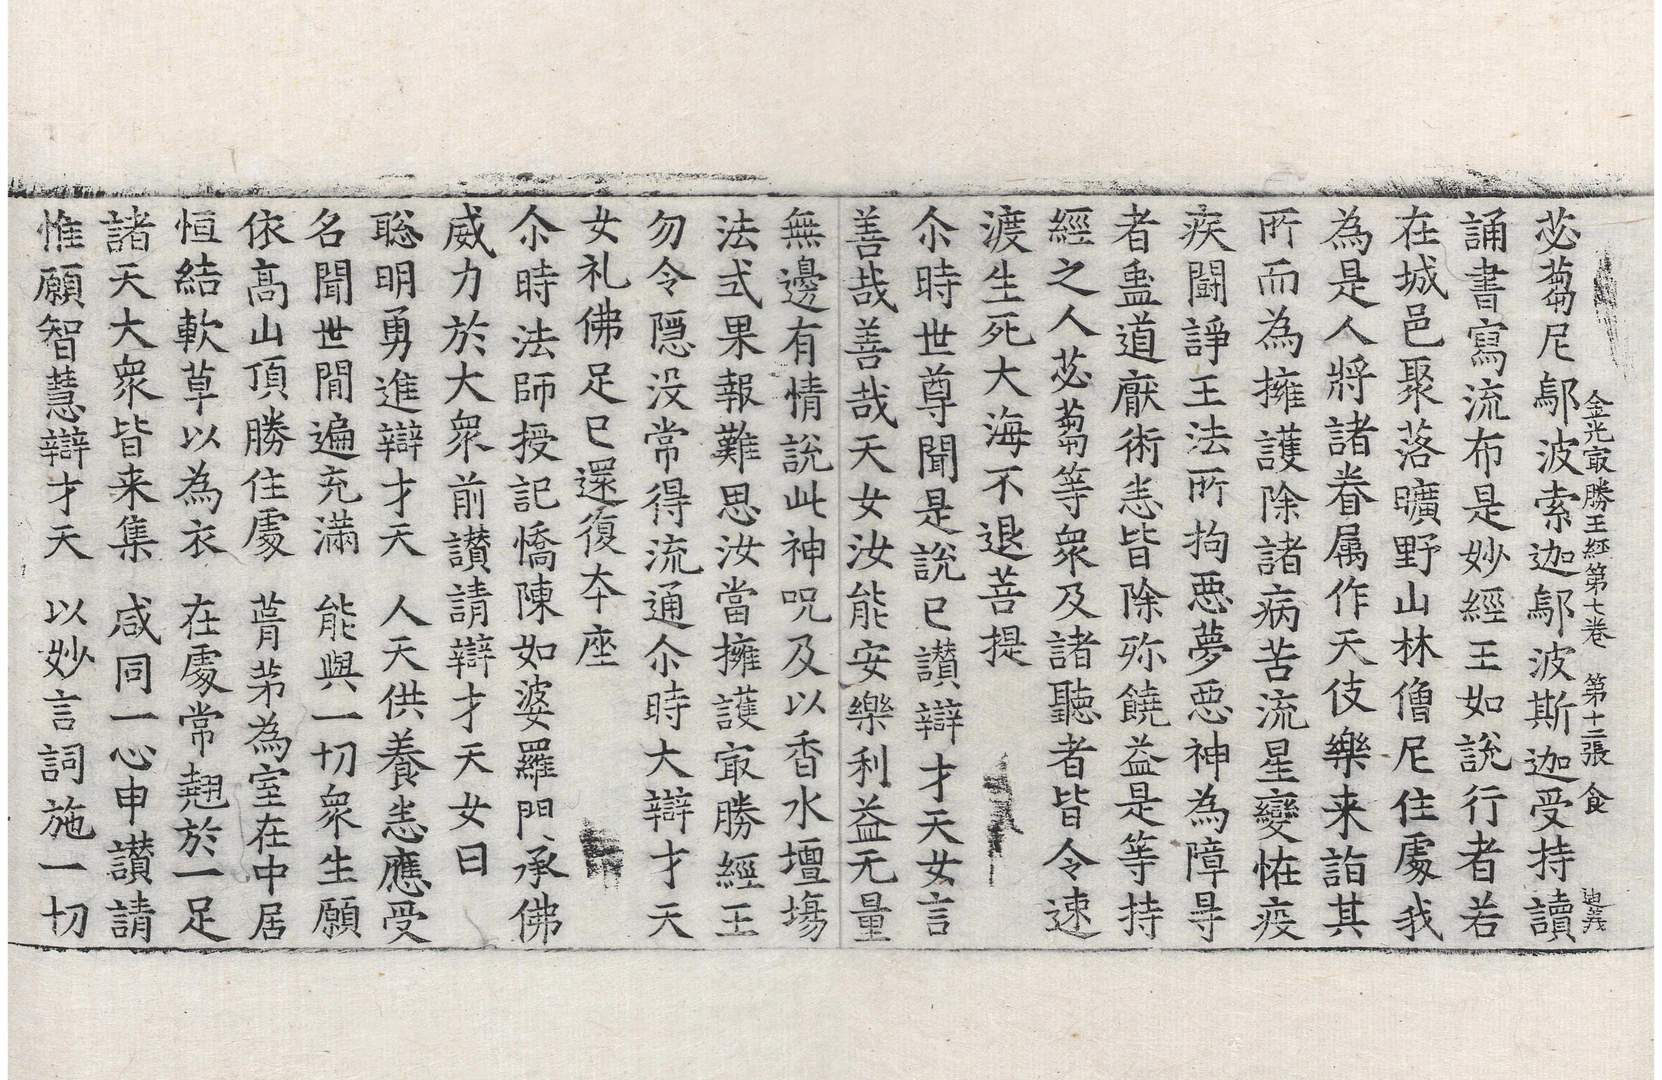 金光㝡勝王經第七卷　第十二張　食　迪義
苾蒭尼鄔波索迦鄔波斯迦受持讀
誦書寫流布是妙經王如說行者若
在城邑聚落曠野山林僧尼住處我
為是人將諸眷属作天伎樂来詣其
所而為擁護除諸病苦流星變恠疫
疾鬪諍王法所拘惡夢惡神為障㝵
者蠱道厭術悉皆除殄饒益是等持
經之人苾蒭等衆及諸聽者皆令速
渡生死大海不退菩提
尒時世尊聞是說已讃辯才天女言
善哉善哉天女汝能安樂利益无量
無邊有情說此神呪及以香水壇場
法式果報難思汝當擁護㝡勝經王
勿令隠没常得流通尒時大辯才天
女礼佛足已還復本座
尒時法師授記憍陳如婆羅門承佛
威力於大衆前讃請辯才天女曰
聡明勇進辯才天　人天供養悉應受
名聞世間遍充滿　能與一切衆生願
依高山頂勝住處　葺茅為室在中居
恒結軟草以為衣　在處常翹於一足
諸天大衆皆来集　咸同一心申讃請
惟願智慧辯才天　以妙言詞施一切